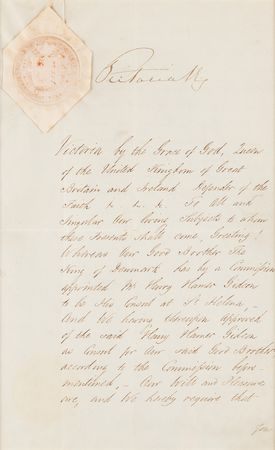 Victoria R
Victoria by the Grace of God, Queen
of the United Kingdom of Great
Britain and Ireland Defender of the
Faith &. &. &. To All and
Singular Our loving Subjects to whom
these Presents shall come, Greeting!
Whereas Our Good Brother The
King of Denmark has by a Commission
appointed Mr Henry Hamer Gideon
to be His Consul at St Helena, _
And We having thereupon approved
of the said Henry Hamer Gideon
as Consul for Our said Good Brother
according to the Commission before
mentioned, _ Our Will and Pleasure
are, and We hereby require that
you